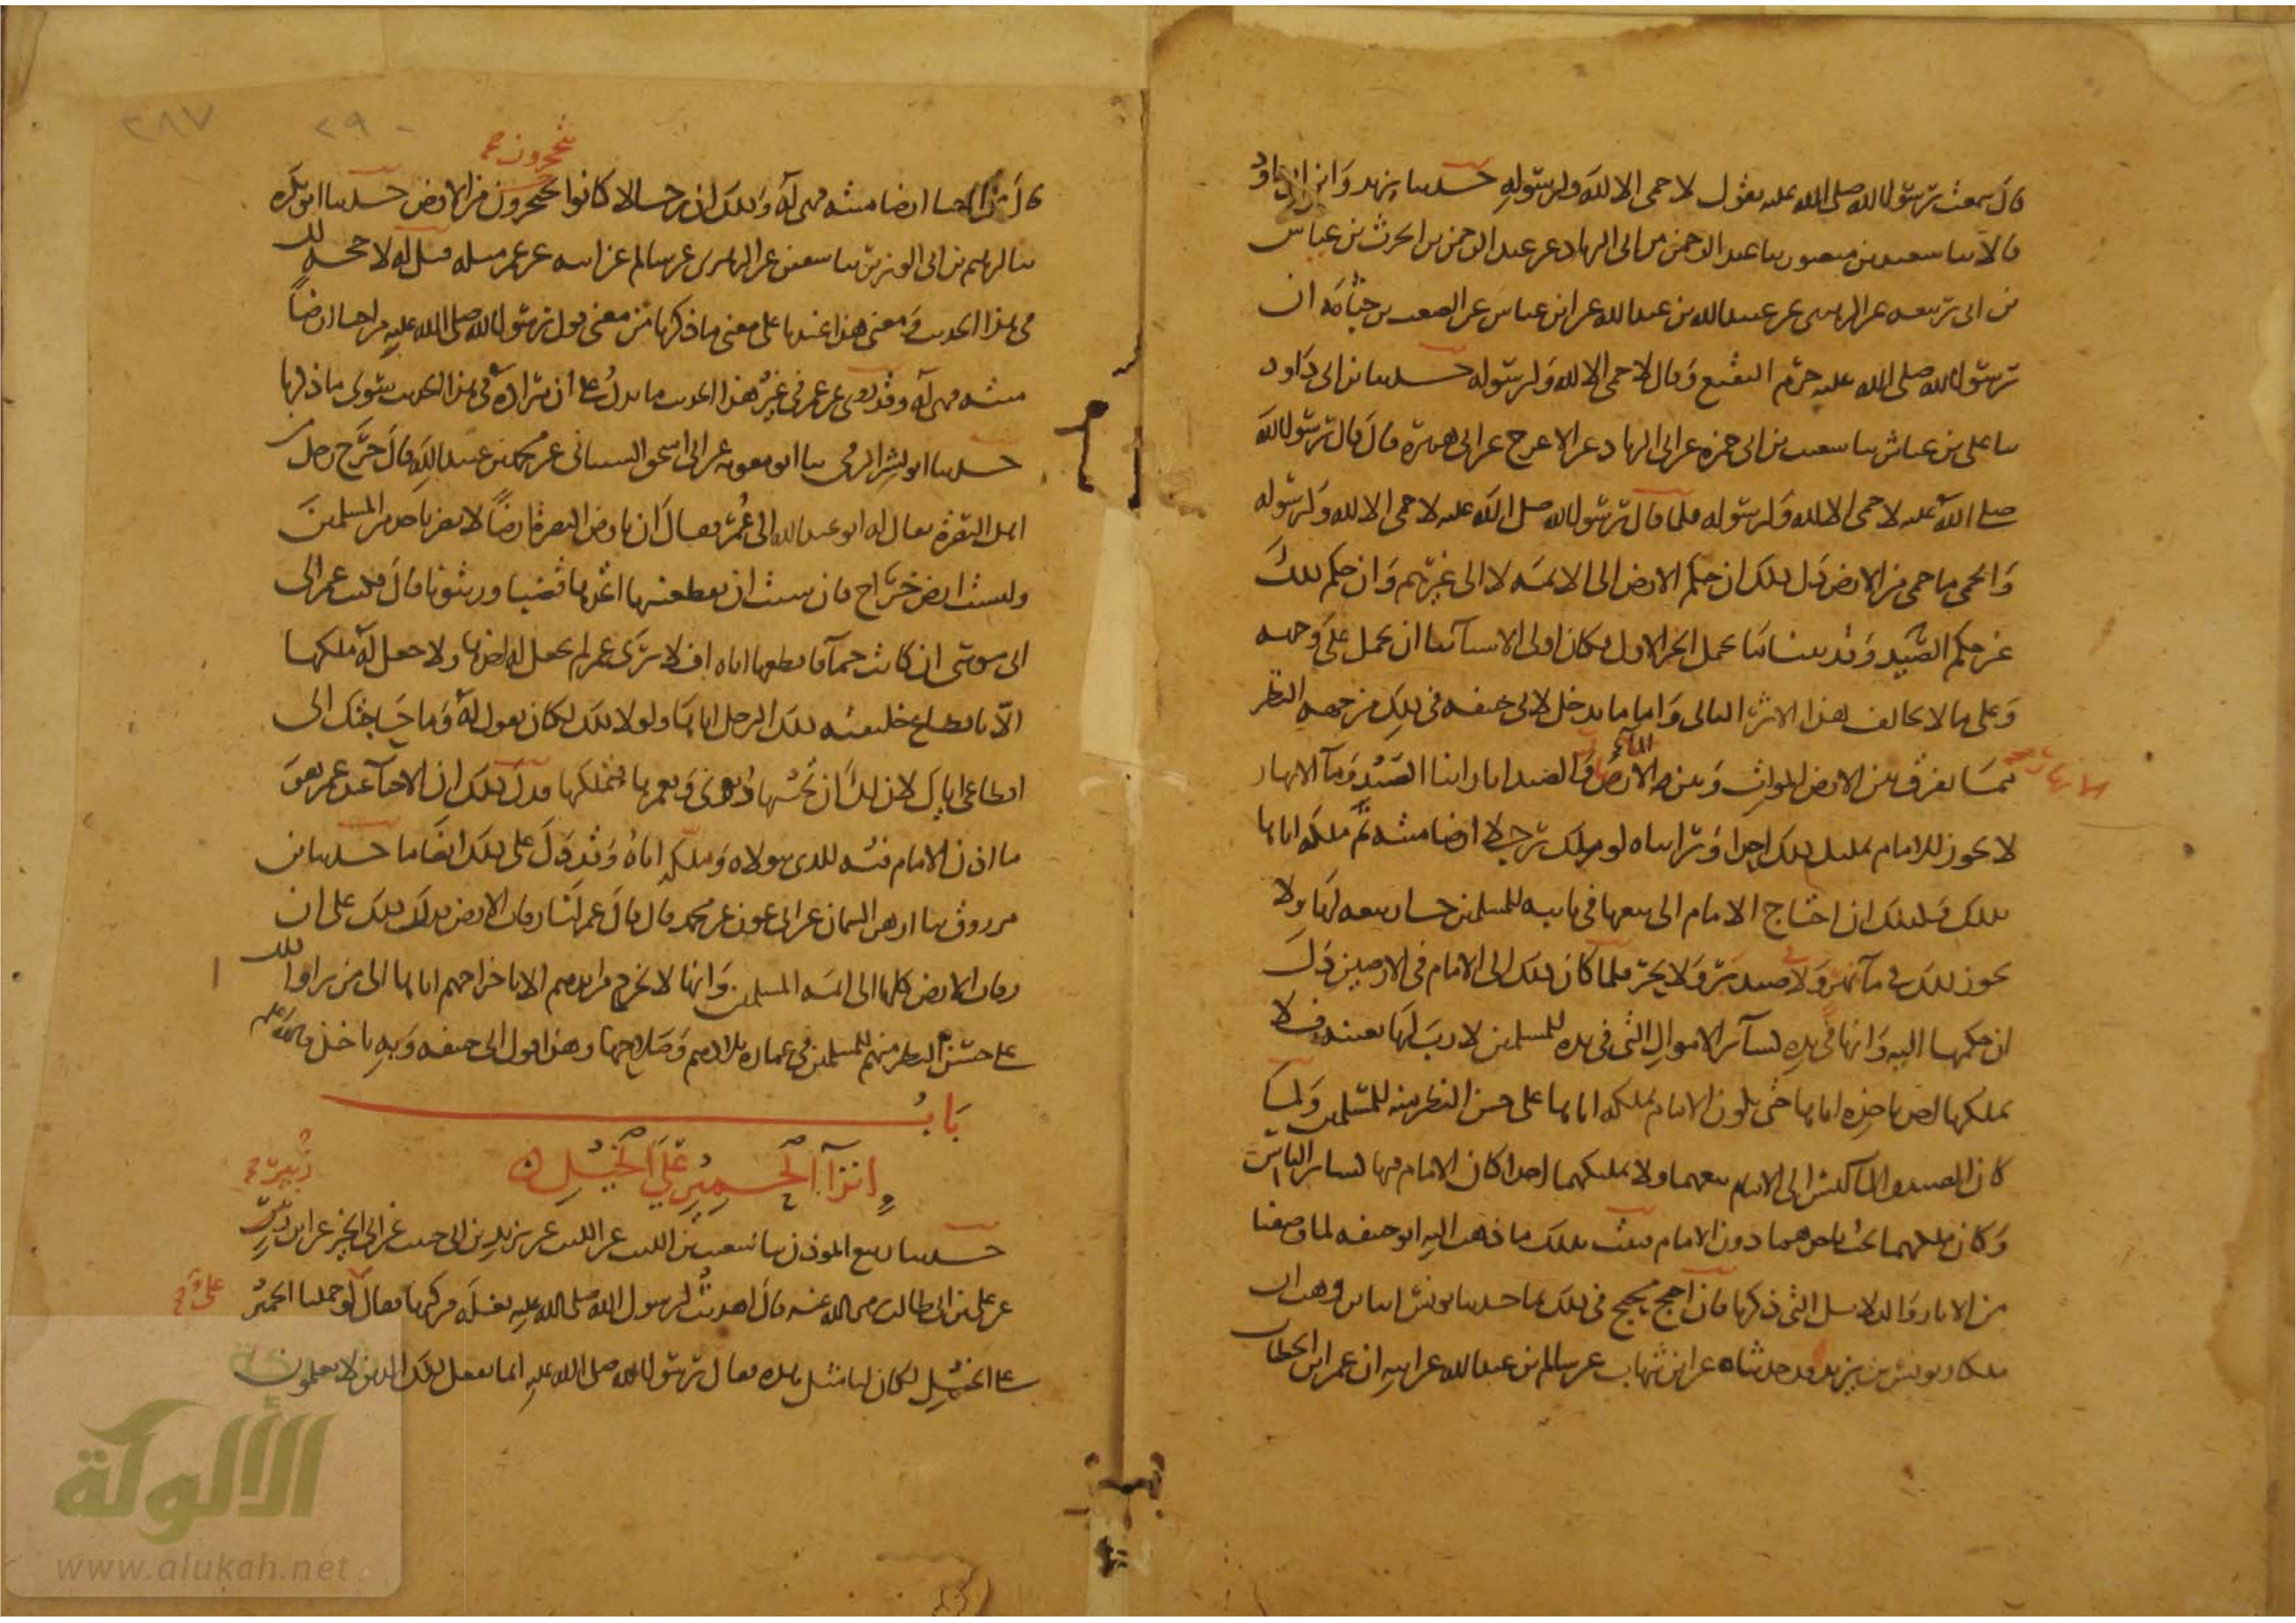 قال سمعت رسول الله صلى الله عليه يقول لا حمى الا لله ولرسوله حدثنا يزيد وابن ابى داود
قالا ثنا سعيد بن منصور ثنا عبد الرحمن بن ابى الزناد عن عبد الرحمن بن الحرث بن عياش
بن ابى ربيعه عن الزهرى عن عبيد الله بن عبد الله عن ابن عباس عن الصعب بن جثامه ان
رسول الله صلى الله عليه حرم البقيع وقال لا حمى الا لله ولرسوله حدثنا بن ابى داود
ثنا على بن عياش ثنا شعيب بن ابى حمزه عن ابى الزناد عن الاعرج عن ابى هريرة قال قال رسول الله
صلى الله عليه لا حمى الا لله ولرسوله فلما قال رسول الله صلى الله عليه لا حمى الا لله ولرسوله
والحمى ما حمى من الارض دل ذلك ان حكم الارض الى الائمه لا الى غيرهم وان حكم ذلك
غير حكم الصيد وقد بينا ما يحتمل الخبر الاول فكان اولى الاشيآ بنا ان نحمل على وجهه
وعلى ما لا يخالف هذا الاثر الثانى واما ما يدخل لابى حنيفه فى ذلك من جهه النظر
مما يفرق بين الارض الموات وبين مآ الانهار والصيد انا راينا الصيد ومآ الانهار
لا يجوز للامام تمليك ذلك احدا ورايناه لو ملك رجلا ارضا ميته ثم ملكه اياها
ذلك وكذلك ان احتاج الامام الى بيعها فى نايبه للمسلمين جاز بيعه لها ولا
يجوز ذلك فى مآ نهر ولا صيد بر ولا بحر فلما كان ذلك الى الامام فى الارضين دل
ان حكمها اليه وانها فى يده كسآئر الاموال التى فى يده للمسلمين لا رب لها بعينه فلا
يملكها احد باخذه اياها حتى يكون الامام يملكه اياها على حسن النظر منه للمسلمين ولما
كان الصيد والمآ ليس الى الامام بيعهما ولا تمليكهما احدا كان الامام فيهما كسائر الناس
وكان ملكهما يجب باخذهما دون الامام فثبت بذلك ما ذهب اليه ابو حنيفه لما وصفنا
من الاثار والدلائل التى ذكرنا فان احتج محتج فى ذلك بما حدثنا يونس انا بن وهب ان
ملكا ويونس بن يزيد حدثاه عن ابن شهاب عن سالم بن عبد الله عن ابيه ان عمر ابن الخطاب
٢٩٠ ٢٨٧
يتحجرون
قال من احيا ارضا ميته فهى له وذلك ان رجالا كانوا يتحجرون من الارض حدثنا ابو بكره
ثنا ابرهيم بن ابى الوزير ثنا سفين عن الزهرى عن سالم عن ابيه عن عمر مثله قيل له لا حجه لك
فى هذا الحديث ومعنى هذا عندنا على معنى ما ذكرنا من معنى قول رسول الله صلى الله عليه من احيا ارضاً
ميته فهى له وقد روى عن عمر فى غير هذا الحديث ما يدل على ان مراده فى هذا الحديث سوى ما ذكرنا
حدثنا ابو بشر الرقى ثنا ابو معويه عن ابى اسحق الشيبانى عن محمد بن عبيد الله قال خرج رجل من
اهل البصرة يقال له ابو عبد الله الى عمر فقال ان بارض البصرة ارضاً لا تضر باحد من المسلمين
وليست ارض خراج فان شئت ان تقطعنيها اتخذها قضبا وزيتونا قال فكتب عمر الى
ابى موسى ان كانت حمآ فاقطعها اياه افلا ترى عمر لم يجعل له اخذها ولا جعل له ملكها
الا باقطاع خليفته ذلك الرجل اياها ولولا ذلك لكان يقول له وما حاجتك الى
اقطاعى اياك لان لك ان تحميها دونى وتعمرها فتملكها فدل ذلك ان الاحيآ عند عمر هو
ما اذن الامام فيه للذى يتولاه وملكه اياه وقد دل على ذلك ايضا ما حدثنا بن
مرزوق ثنا ازهر السمان عن ابن عون عن محمد قال قال عمر لنا رقاب الارض فدل ذلك على ان
رقاب الارض كلها الى ائمه المسلمين وانها لا تخرج من ايديهم الا باخراجهم اياها الى من راوا ذلك
على حسن النظر منهم للمسلمين فى عماره بلادهم وصلاحها وهذا قول ابى حنيفه وبه ناخذ
باب
انزآ الحمير على الخيل
حدثنا ربيع الموذن ثنا شعيب بن الليث عن الليث عن يزيد بن ابى حبيب عن ابى الخير عن ابن زرير
عن على بن ابى طالب رضى الله عنه قال اهديت لرسول الله صلى الله عليه بغله فركبها فقال لو حملنا الحمير
على الخيل لكان لنا مثل هذه فقال رسول الله صلى الله عليه انما يفعل ذلك الذين لا يعلمون
الألوكة
www.alukah.net